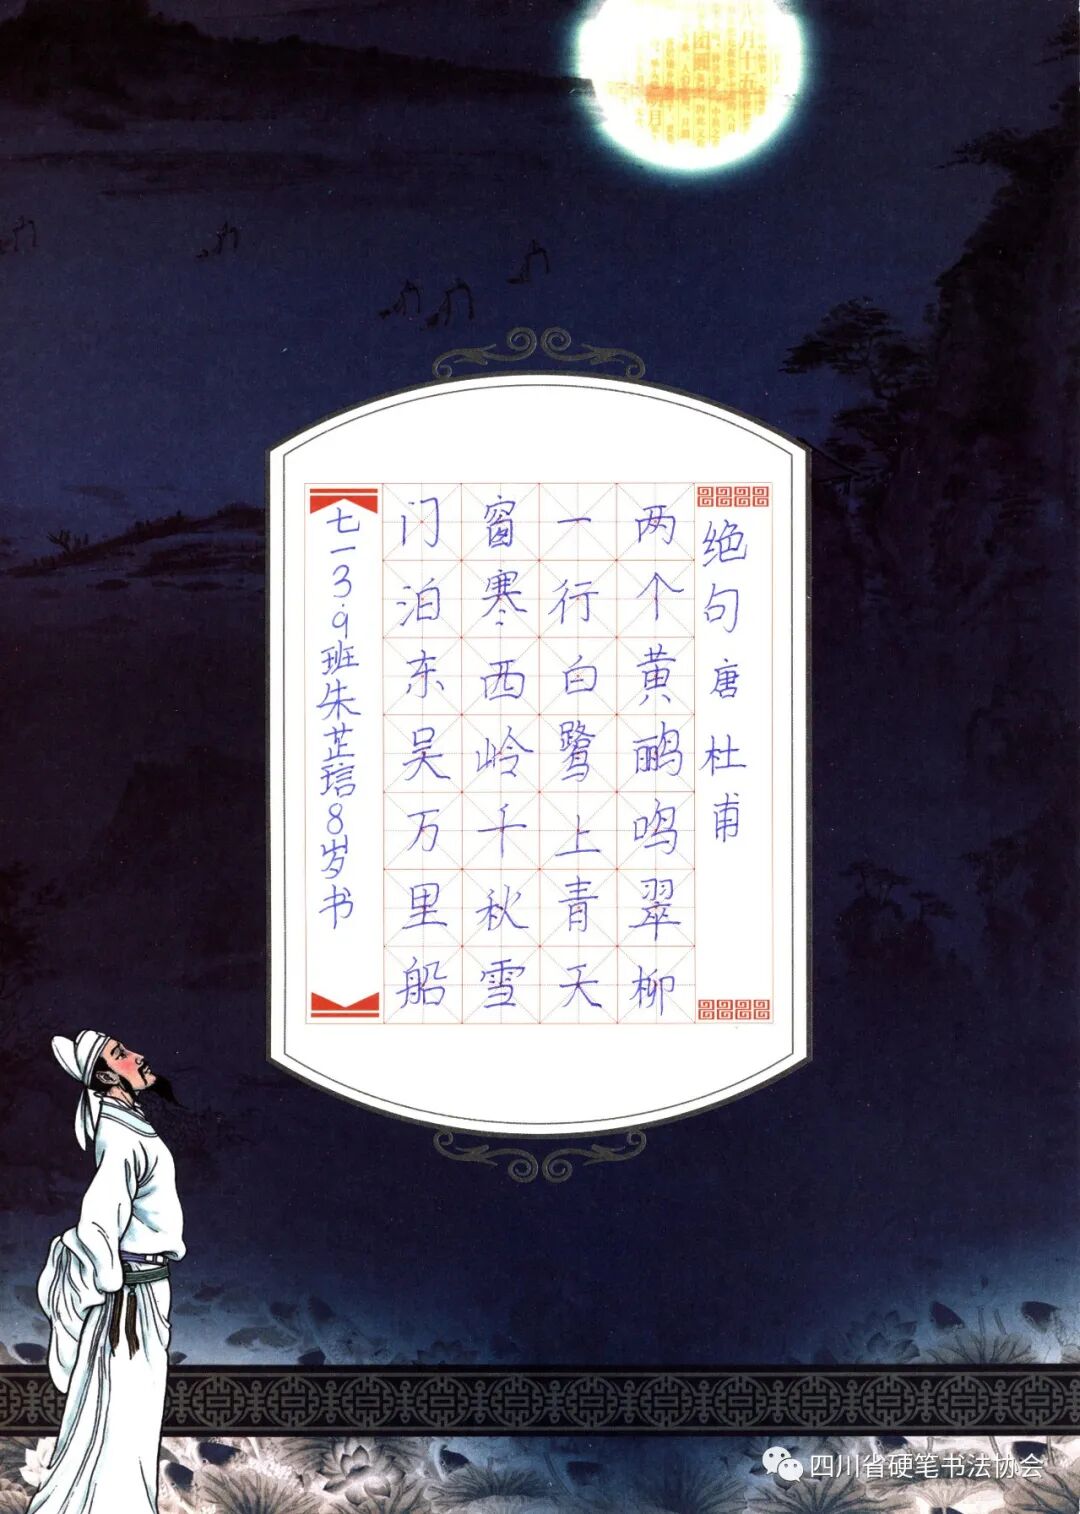 绝句 唐 杜甫
两个黄鹂鸣翠柳
一行白鹭上青天
窗寒西岭千秋雪
门泊东吴万里船
七一3.9班朱芷琂8岁书
八月十五
团圆
月
四川省硬笔书法协会